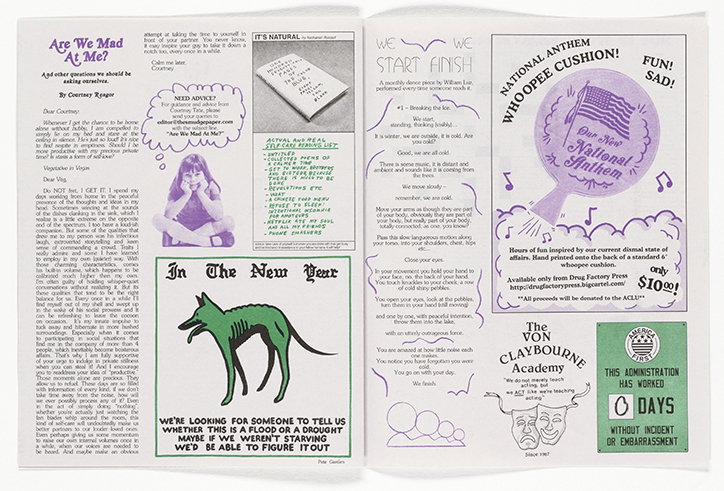 Are We Mad
At Me?
And other questions we should be
asking ourselves.
By Courtney Reagor
Dear Courtney:
Whenever I get the chance to be home
alone without hubby, I am compelled to
simply lie on my bed and stare at the
ceiling in silence. He's just so loud! It's nice
to find respite in emptiness. Should I be
more productive with my precious private
time? Is stasis a form of self-love?
Vegetative in Vegas
Dear Veg,
Do NOT fret, I GET IT. I spend my
days working from home in the peaceful
presence of the thoughts and ideas in my
head. Sometimes wincing at the sounds
of the dishes clanking in the sink, which I
realize is a little extreme on the opposite
end of the spectrum. I too have a loud-ish
companion. But some of the qualities that
drew me to my person was his infectious
laugh, extroverted storytelling and keen
sense of commanding a crowd. Traits I
really admire and some I have learned
to employ in my own (quieter) way. With
those charming characteristics, comes
his built-in volume, which happens to be
calibrated much higher then my own.
I'm often guilty of holding whisper-quiet
conversations without realizing it. But its
these qualities that tend to be the right
balance for us. Every once in a while I'll
find myself out of my shell and swept up
in the wake of his social prowess and it
can be refreshing to leave the cocoon
on occasion. It's my innate impulse to
tuck away and hibernate in more hushed
surroundings. Especially when it comes
to participating in social situations that
find me in the company of more than 4
people, which inevitably become boisterous
affairs. That's why I am fully supportive
of your urge to indulge in private stillness
when you can steal it! And I encourage
you to readdress your idea of "productive."
Those moments alone are precious. They
allow us to refuel. These days are so filled
with information of every kind, if we don't
take time away from the noise, how will
we ever possibly process any of it? Even
in the act of simply doing "nothing",
whether you're actually just watching the
fan blades whip around the room, this
kind of self-care will undoubtedly make us
better partners to our louder loved ones.
Even perhaps giving us some momentum
to raise our own internal volumes once in
a while, when our voices are needed to
be heard. And maybe make an obvious
attempt at taking the time to yourself in
front of your partner. You never know,
it may inspire your guy to take it down a
notch too, every once in a while.
Calm me later,
Courtney
NEED ADVICE?
For guidance and advice from
Courtney Tate, please
send your queries to
editor@thesmudgepaper.com
with the subject line,
"Are We Mad At Me?"
IT'S NATURAL
ACTUAL AND REAL
SELF CARE READING LIST
- UNTITLED
- COLLECTED POEMS OF
A CALMER TIME
- GET TO WORK, BROTHERS
AND SISTERS BECAUSE
THERE IS MUCH TO BE
DONE
- REVOLUTIONS ETC.
- WHAT
- A CHINESE FOOD MENU
- REFUSE TO SLEEP:
INTENTIONAL INSOMNIA
FOR AMATEURS
- NETFLIX ATE MY SOUL
AND ALL MY FRIENDS
In The New Year
WE'RE LOOKING FOR SOMEONE TO TELL US
WHETHER THIS IS A FLOOD OR A DROUGHT
MAYBE IF WE WEREN'T STARVING
WE'D BE ABLE TO FIGURE IT OUT
WE WE
START FINISH
A monthly dance piece by William Luz,
performed every time someone reads it.
#1 – Breaking the Ice.
We start,
standing, thinking (visibly)...
It is winter, we are outside, it is cold. Are
you cold?
Good, we are all cold.
There is some music, it is distant and
ambient and sounds like it is coming from
the trees.
We move slowly –
remember, we are cold.
Move your arms as though they are part
of your body, obviously they are part of
your body, but really part of your body,
totally connected, as one, you know?
Pass this slow languorous motion along
your torso, into your shoulders, chest, hips
etc...
Close your eyes.
In your movement you hold your hand to
your face, no, the back of your hand.
You touch knuckles to your cheek, a row
of cold shiny pebbles.
You open your eyes, look at the pebbles,
turn them in your hand (still moving)
and one by one, with peaceful intention,
throw them into the lake,
with an utterly outrageous force.
You are amazed at how little noise each
one makes.
You notice you have forgotten you were
cold.
You go on with your day.
We finish.
NATIONAL ANTHEM
WHOOPEE CUSHION!
FUN!
SAD!
Our New
National
Anthem
Hours of fun inspired by our current dismal state of
affairs. Hand printed onto the back of a standard 6"
whoopee cushion.
Available only from Drug Factory Press
http://drugfactorypress.bigcartel.com/
only
$10.00!
**All proceeds will be donated to the ACLU**
The
VON
CLAYBOURNE
Academy
"We do not merely teach
acting, but
we ACT like we're teaching
acting"
Since 1987
AMERICA
FIRST
THIS ADMINISTRATION
HAS WORKED
0 DAYS
WITHOUT INCIDENT
OR EMBARRASSMENT